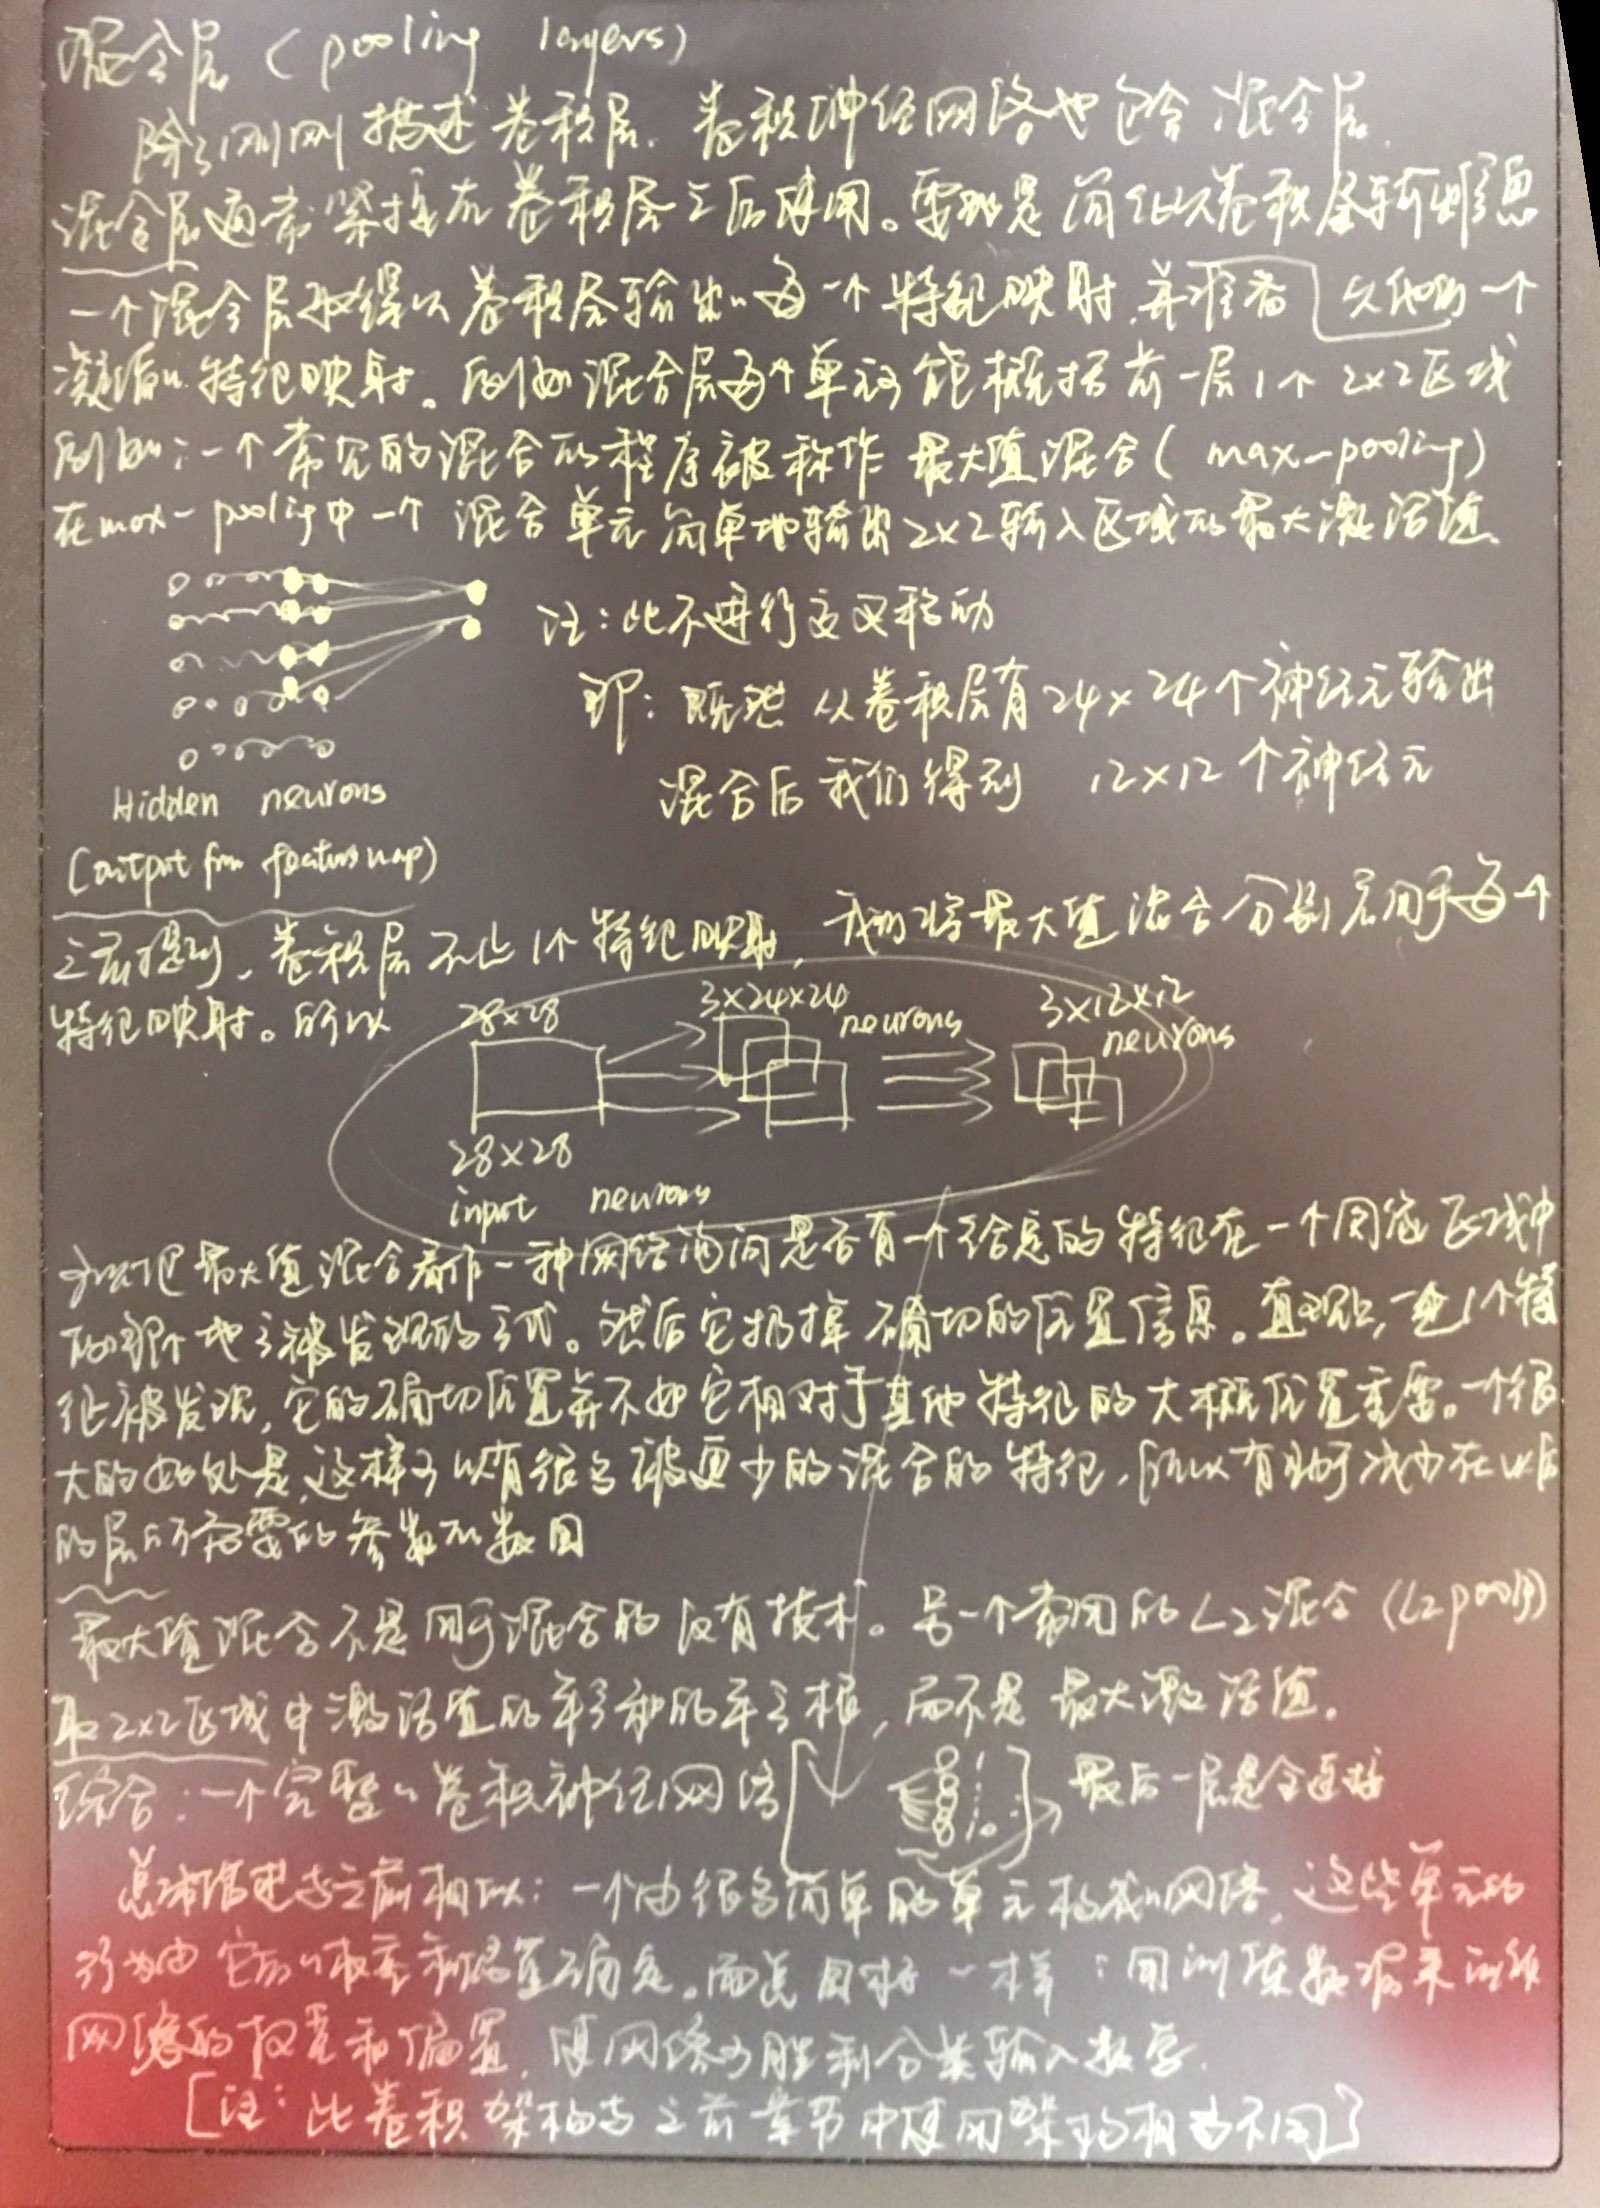 混合层 (pooling layers)
除了刚刚描述卷积层. 卷积神经网络也包含混合层.
混合层通常紧接在卷积层之后使用。要做是简化从卷积层输出的信息
一个混合层取得从卷积层输出的每一个特征映射.并准备 一个
凝缩的特征映射。例如混合层每个单元能概括前一层1个2×2区域
例如:一个常见的混合的程序被称作 最大值混合( max-pooling)
在max-pooling中一个 混合单元简单地输出2×2输入区域的最大激活值.
注:此不进行交叉移动
即: 既然 从卷积层有24×24个神经元输出
混合后我们得到 12×12个神经元
Hidden neurons
(output from feature map)
之前提到, 卷积层不止1个特征映射, 我们将最大值混合分别应用于每一个
特征映射。所以
28×28
3×24×24 neurons
3×12×12 neurons
28×28
input neurons
可以把最大值混合看作一种网络询问是否有一个给定的特征在一个图像区域中
的哪个地方被发现的方式。然后它扔掉确切的位置信息。直观上,一旦1个特
征被发现,它的确切位置并不如它相对于其他特征的大概位置重要。一个很
大的好处是,这样可以有很多被更少的混合的特征,所以有助于减少在以后
的层所需要的参数的数目
最大值混合不是用于混合的仅有技术。另一个常用的L2混合 (L2 pooling)
取2×2区域中激活值的平方和的平方根, 而不是 最大激活值.
综合:一个完整的卷积神经网络 最后一层是全连接
总体描述与之前相似: 一个由很多简单的单元构成的网络, 这些单元的
行为由它们的权重和偏置确定。而总目标一样:用训练数据来训练
网络的权重和偏置, 使网络可胜利分类输入数字.
[注: 此卷积架构与之前章节中使用架构相当不同]